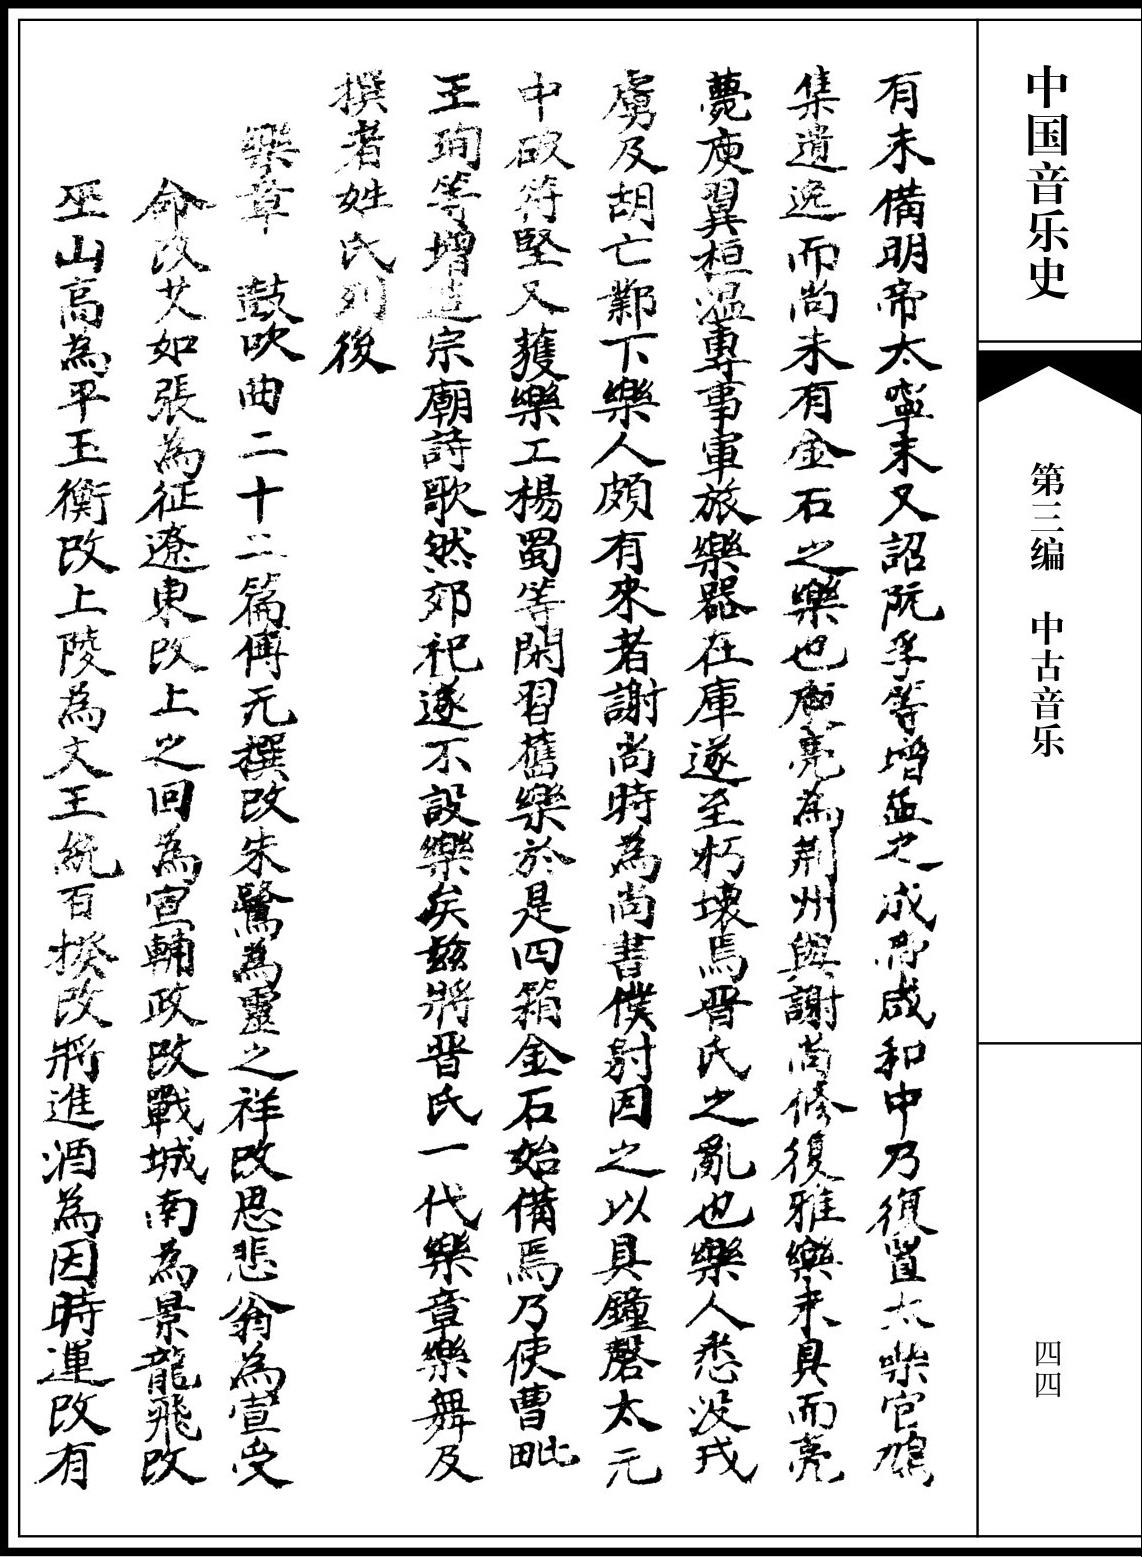 中国音乐史
第三编　中古音乐
四四
有未備明帝太寧末又詔阮孚等增益之成帝咸和中乃復置太樂官鳩
集遺逸而尚未有金石之樂也庾亮為荆州與謝尚修復雅樂未具而亮
薨庾翼桓温專事軍旅樂器在庫遂至朽壞焉晋氏之亂也樂人悉没戎
虜及胡亡鄴下樂人頗有來者謝尚時為尚書僕射因之以具鐘磬太元
中破符堅又獲樂工楊蜀等閑習舊樂於是四箱金石始備焉乃使曹毗
王珣等增造宗廟詩歌然郊祀遂不設樂矣兹將晋氏一代樂章樂舞及
撰者姓氏列後
樂章　鼓吹曲二十二篇傅元撰改朱鷺為靈之祥改思悲翁為宣受
命改艾如張為征遼東改上之回為宣輔政改戰城南為景龍飛改
巫山高為平玉衡改上陵為文王統百揆改將進酒為因時運改有